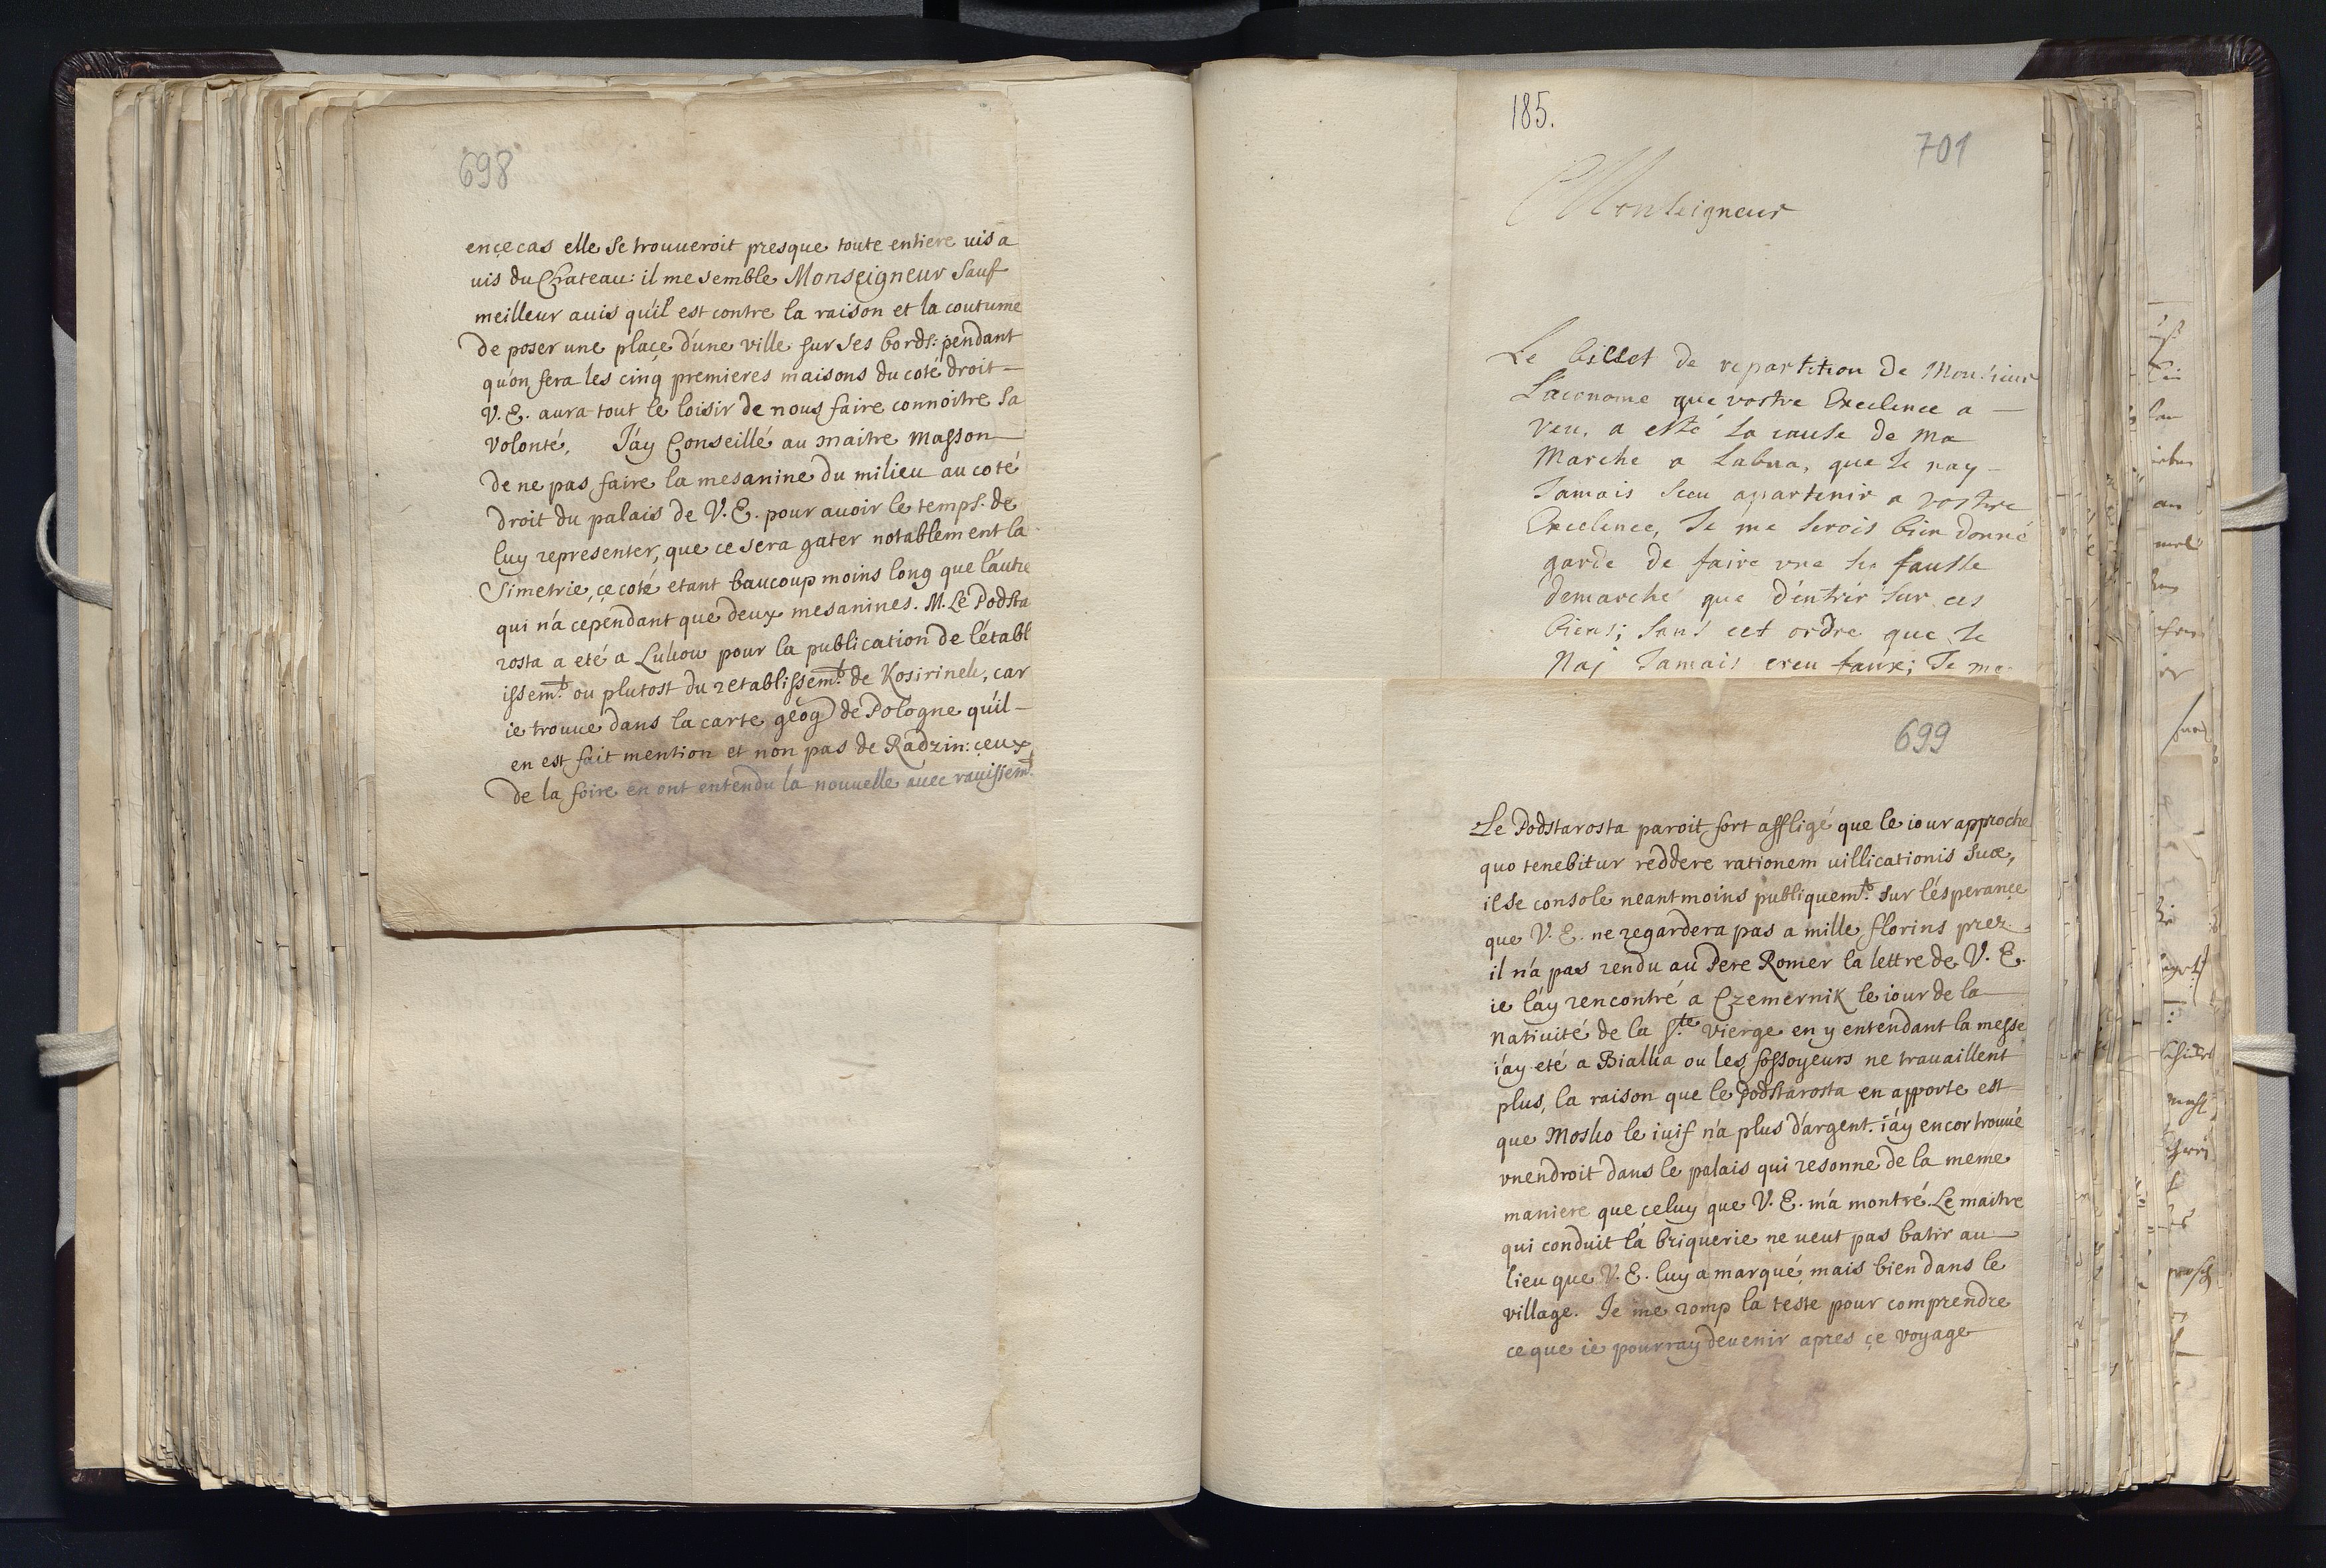 698
en çe cas elle se trouueroit presque toute entiere uis a
uis du Chateau: il me semble Monseigneur sauf
meilleur auis qu'il est contre la raison et la coutume
de poser une plaçe d'une ville sur ses bords: pendant
qu'on fera les cinq premieres maisons du coté droit —
V. E. aura tout le loisir de nous faire connoitre sa
volonté. J'ay Conseillé au maitre masson
de ne pas faire la mesanine du milieu au coté
droit du palais de V. E. pour auoir le temps de
luy representer, que ce sera gater notablement la
Simetrie, çe coté etant baucoup moins long que l'autre
qui n'a cependant que deux mesanines. M. Le Podsta
rosta a eté a Lukow pour la publication de l'établ
issemt. ou plutost du retablissemt. de Kosirinek, car
ie trouue dans la carte geog de Pologne qu'il —
en est fait mention et non pas de Radzin: çeux
de la foire en ont entendu la nouuelle auec rauissemt.
185.
701
Monseigneur
Le billet de repartition de Monsieur
L'aconome que vostre Excelence a —
veu, a esté la cause de ma
Marche a Labna, que Je nay —
Jamais sceu apartenir a vostre
Excelence, Je me serois bien donné
garde de faire vne si fausse
demarche que d'entrer sur ces
biens; sans cet ordre que Je
Naj Jamais creu faux; Je me
699
Le Podstarosta paroit fort affligé que le iour approche
quo tenebitur reddere rationem uillicationis suæ,
il se console neantmoins publiquemt. sur l'ésperançe
que V. E. ne regardera pas a mille florins prez.
il n'a pas rendu au Pere Romer la lettre de V. E.
ie l'ay rencontré a Czemernik le iour de la
natiuité de la Ste. vierge en y entendant la messe
i'ay eté a Bialka ou les fossoyeurs ne trauaillent
plus, la raison que le Podstarosta en apporte est
que Mosko le iuif n'a plus d'argent. i'ay encor trouué
vnendroit dans le palais qui resonne de la meme
maniere que celuy que V. E. m'a montré. Le maitre
qui conduit la briquerie ne ueut pas batir au
lieu que V. E. luy a marqué, mais bien dans le
village. Je me romp la teste pour comprendre
ce que ie pourray deuenir apres çe voyage